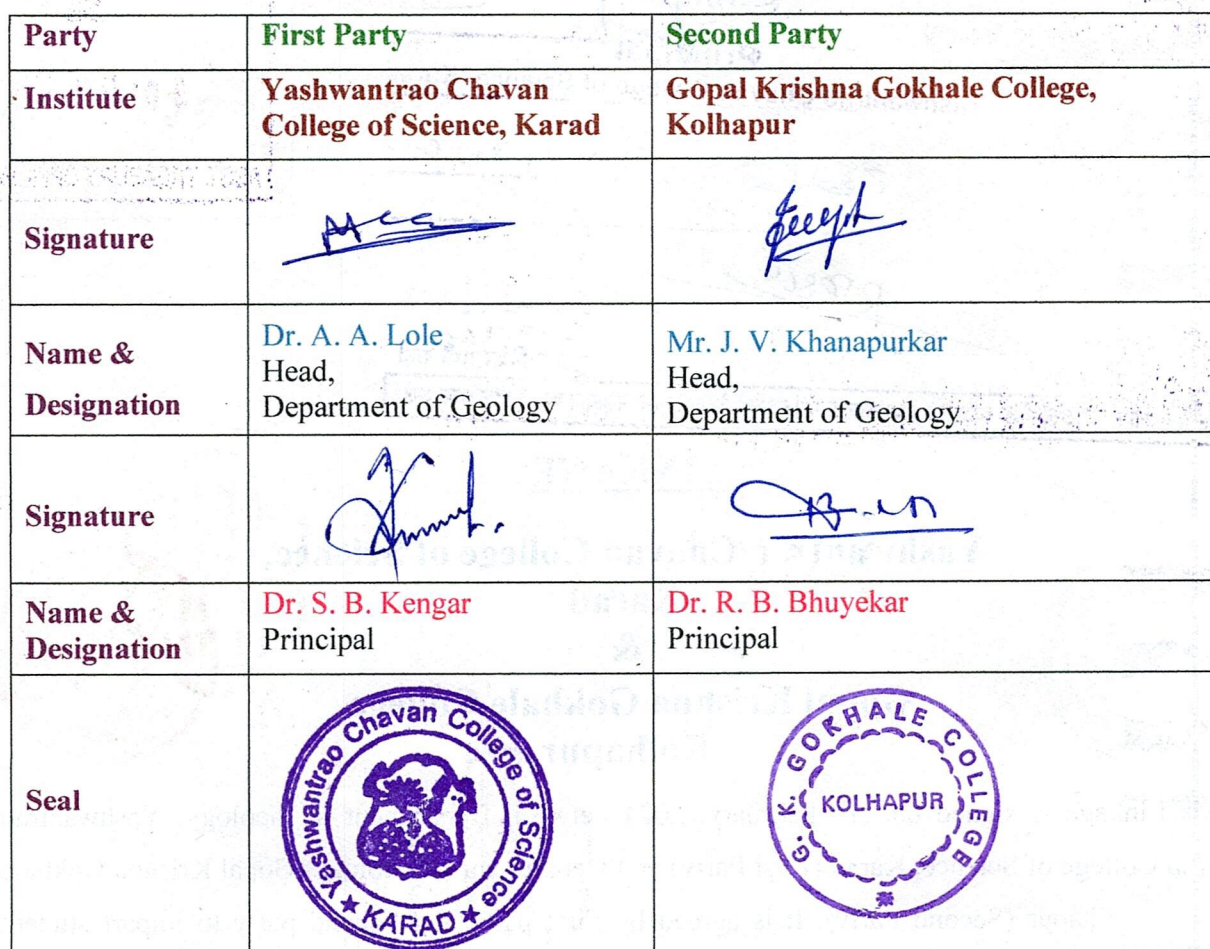 Party First Party Second Party
Institute Yashwantrao Chavan College of Science, Karad Gopal Krishna Gokhale College, Kolhapur
Signature
Name & Designation Dr. A. A. Lole Mr. J. V. Khanapurkar
Head, Head,
Department of Geology Department of Geology
Signature
Name & Designation Dr. S. B. Kengar Dr. R. B. Bhuyekar
Principal Principal
Seal
Yashwantrao Chavan College of Science
★ KARAD ★
G. K. GOKHALE COLLEGE
KOLHAPUR